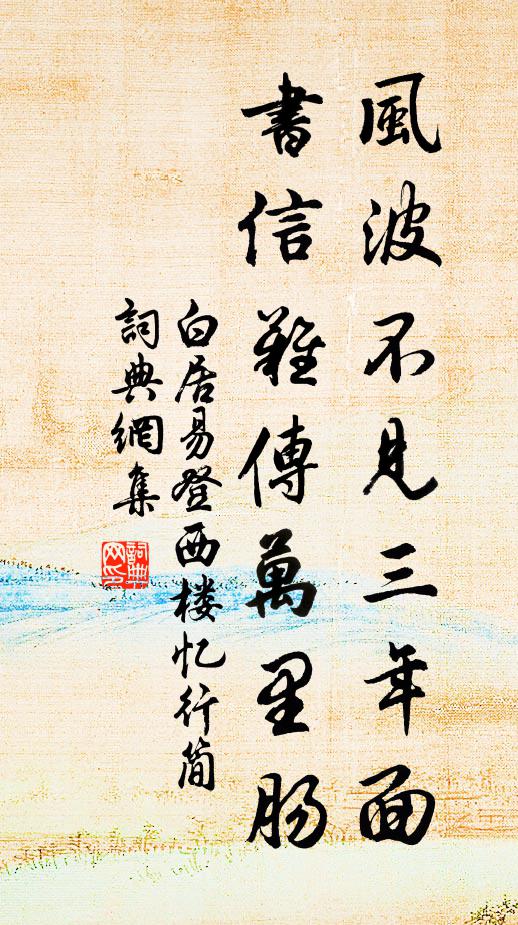 風波不見三年面
書信難傳萬里肠
白居易登西楼忆行簡
詞典網集
詞典
网印